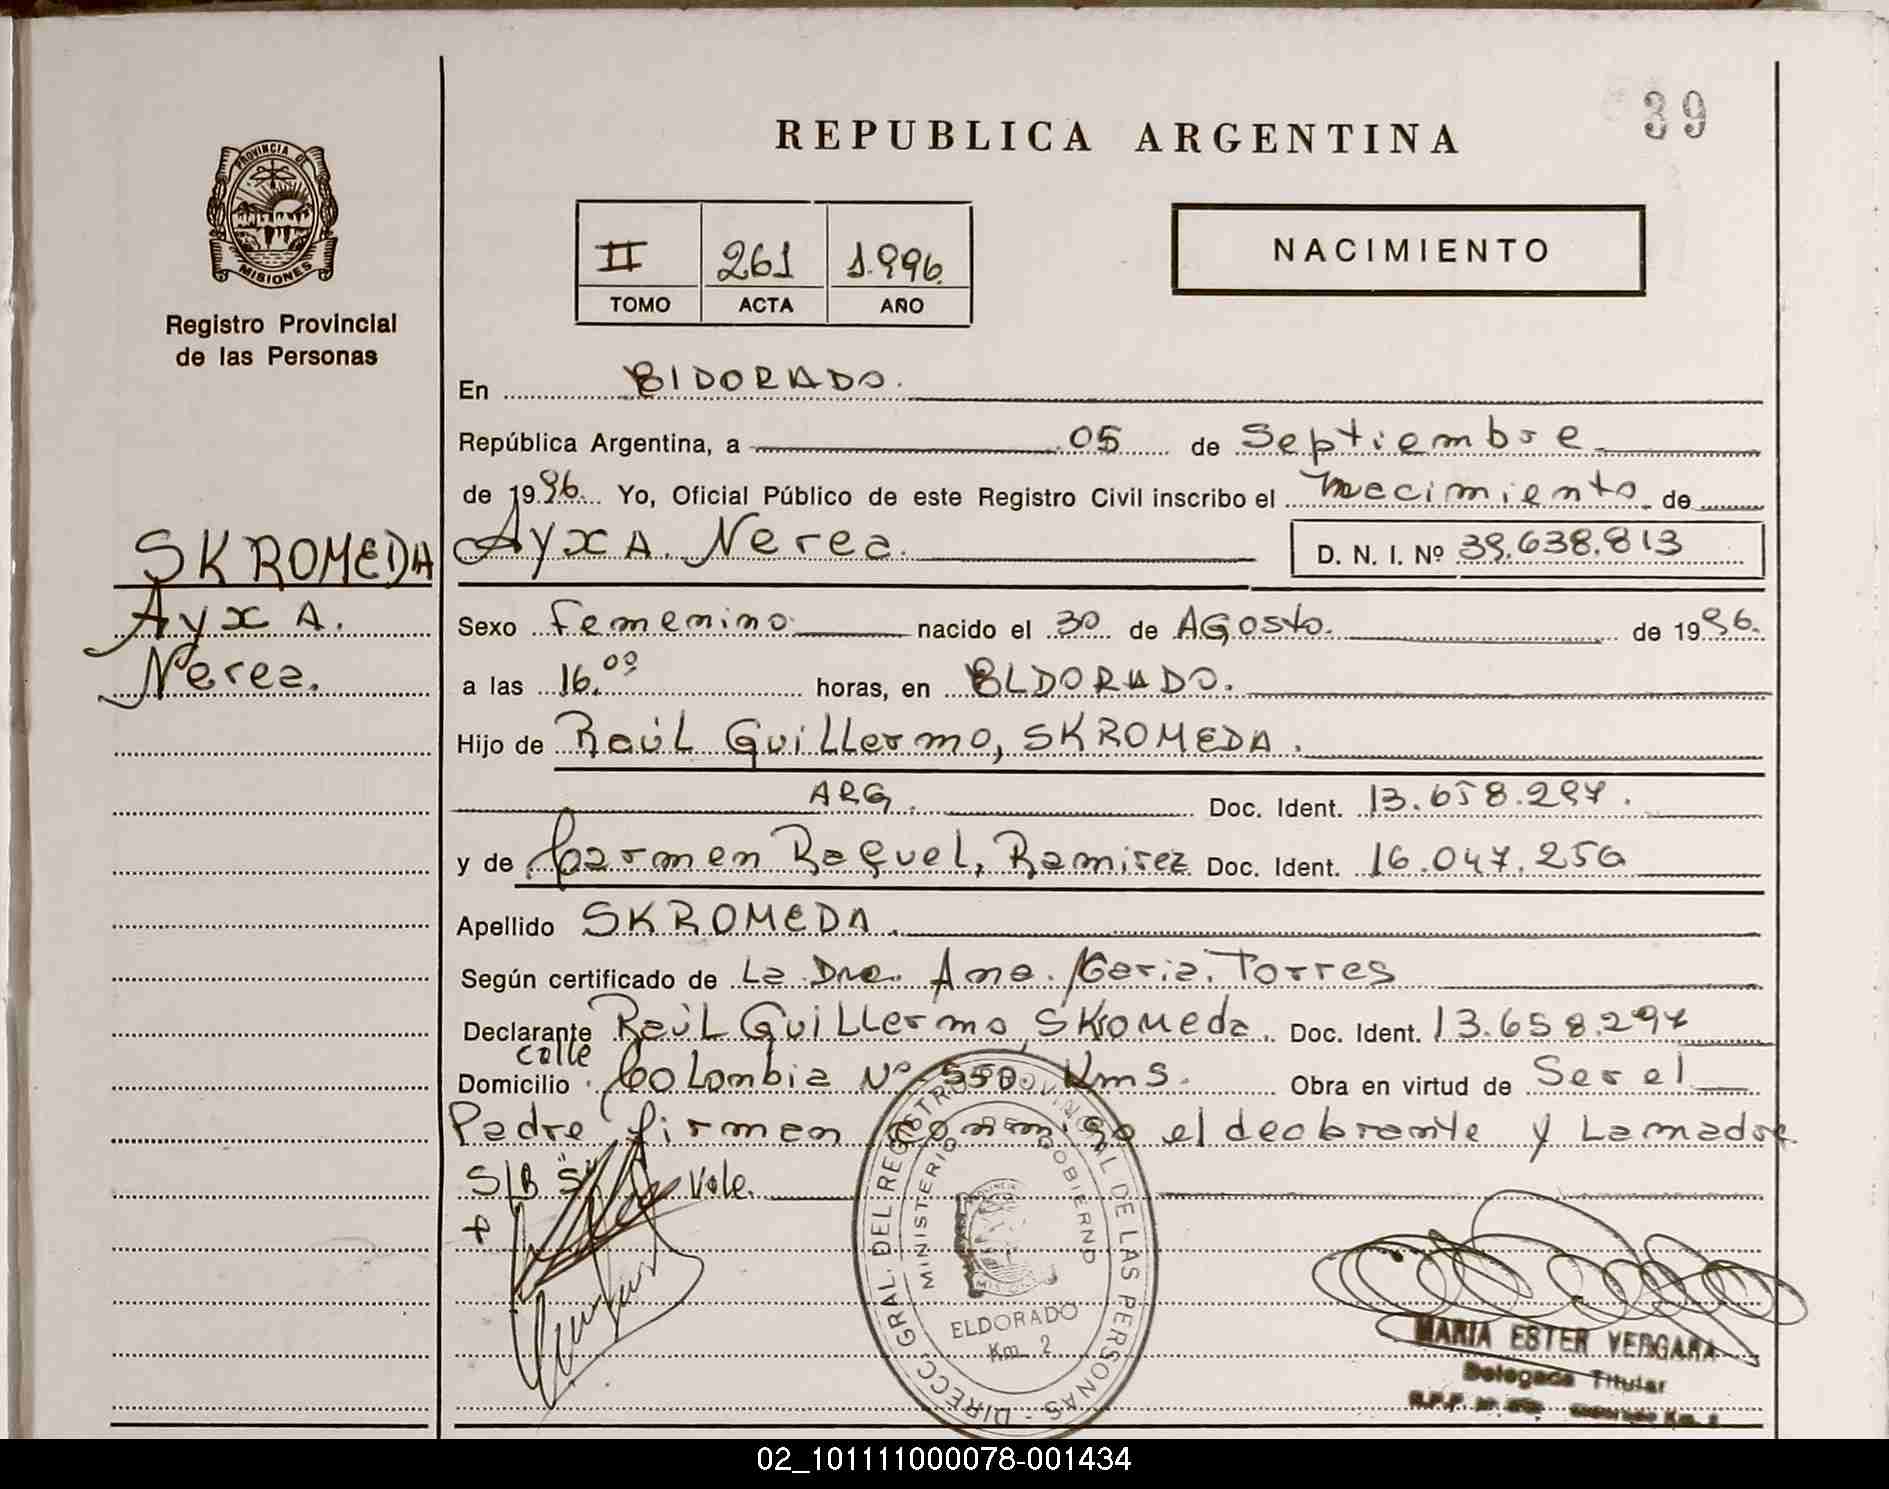 39
REPUBLICA ARGENTINA
PROVINCIA DE
MISIONES
Registro Provincial
de las Personas
II 261 1.996.
TOMO ACTA AÑO
NACIMIENTO
En ElDORADO.
República Argentina, a 05 de Septiembre
de 1996. Yo, Oficial Público de este Registro Civil inscribo el nacimiento de
AyxA Nerea.
D. N. I. Nº 39.638.813
SKROMEDA
AyxA.
Nerea.
Sexo Femenino nacido el 30 de AGosto. de 1996.
a las 16.00 horas, en ELDORADO.
Hijo de Raúl Guillermo, SKROMEDA.
ARG. Doc. Ident. 13.658.297.
y de Carmen Raquel, Ramirez Doc. Ident. 16.047.256
Apellido SKROMEDA.
Según certificado de La Dra. Ana Maria Torres
Declarante Raúl Guillermo, SKromeda. Doc. Ident. 13.658.297
calle
Domicilio Colombia Nº 550 Kms. Obra en virtud de Ser el
Padre firman conmigo el declarante y La madre
S/B Vale.
DIRECC. GRAL. DEL REGISTRO PROVINCIAL DE LAS PERSONAS
MINISTERIO DE GOBIERNO
ELDORADO
Km. 2
MARIA ESTER VERGARA
Delegada Titular
02_101111000078-001434